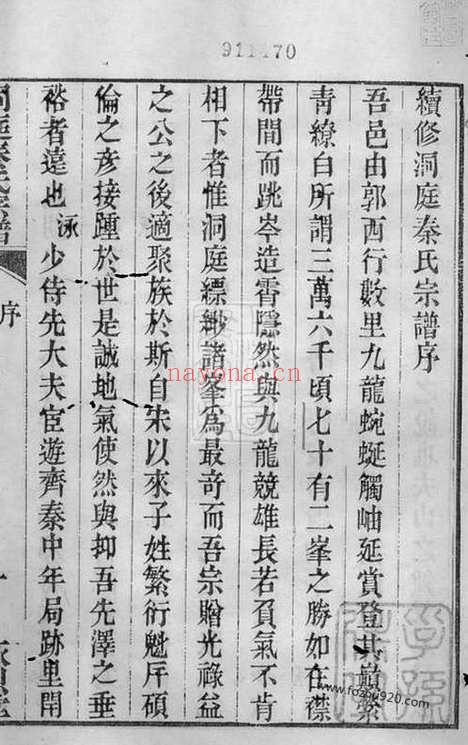 911170
續修洞庭秦氏宗譜序
吾邑由郭西行數里九龍蜿蜒觸岫延賞登其巔縈
青繚白所謂三萬六千頃七十有二峯之勝如在襟
帶間而跳岑造霄隱然與九龍競雄長若負氣不肯
相下者惟洞庭縹緲諸峯為最奇而吾宗贈光祿益
之公之後適聚族於斯自宋以來子姓繁衍魁厈碩
倫之彥接踵於世是誠地氣使然與抑吾先澤之垂
裕者遠也泳少侍先大夫宦遊齊秦中年局跡里閈
洞庭秦氏宗譜
序
nayona.cn
www.fozhu920.com